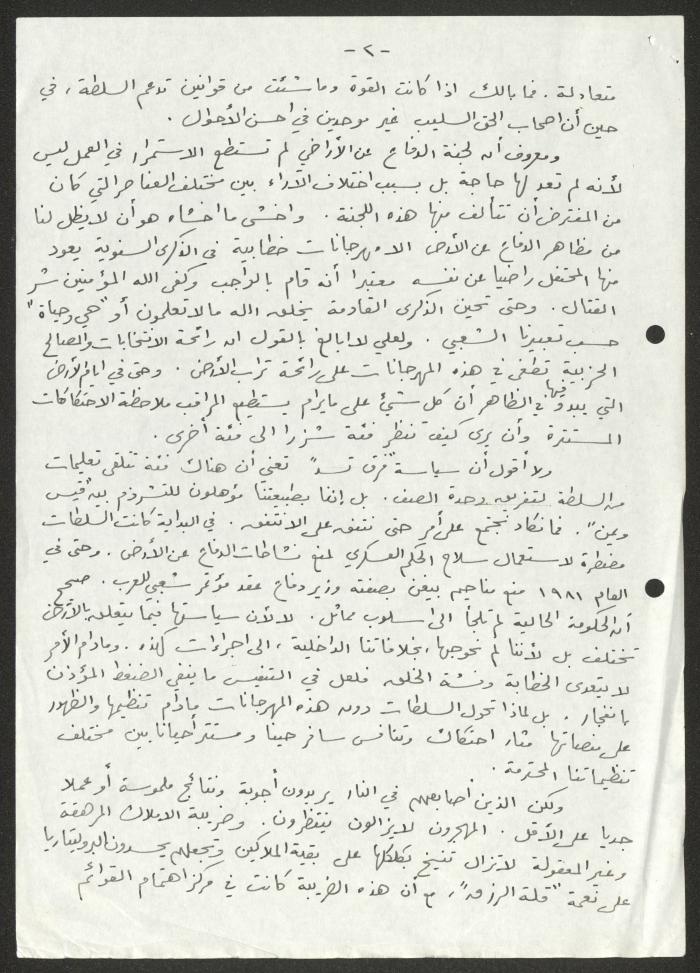 -٢-
متعادلة. فما بالك اذا كانت القوة وما شئت من قوانين تدعم السلطة، في
حين أن اصحاب الحق السليب غير موحدين في احسن الأحوال.
ومعروف أن لجنة الدفاع عن الأراضي لم تستطع الاستمرار في العمل ليس
لأنه لم تعد لها حاجة بل بسبب اختلاف الآراء بين مختلف العناصر التي كان
من المفترض أن تتألف منها هذه اللجنة. واخشى ما اخشاه هو أن لا يظل لنا
من مظاهر الدفاع عن الأرض الا مهرجانات خطابية في الذكرى السنوية يعود
منها المحتفل راضيا عن نفسه معتبرا أنه قام بالواجب وكفى الله المؤمنين شر
القتال. وحتى تحين الذكرى القادمة يخلق الله ما لا تعلمون أو "هي وحياة"
حسب تعبيرنا الشعبي. ولعلي لا ابالغ بالقول ان رائحة الانتخابات والمصالح
الحزبية تطغى في هذه المهرجانات على رائحة تراب الأرض. وحتى في ايام الأرض
التي يبدو فيها في الظاهر أن كل شيء على ما يرام يستطيع المراقب ملاحظة الاحتكاكات
المستترة وأن يرى كيف تنظر فئة شزرا الى فئة أخرى.
ولا أقول أن سياسة "فرق تسد" تعني أن هناك فئة تتلقى تعليمات
من السلطة لتفريق وحدة الصف. بل إننا بطبيعتنا مؤهلون للتشرذم بين "قيس
ويمن". فما نكاد نجمع على أمر حتى نتفق على الا نتفق. في البداية كانت السلطات
مضطرة لاستعمال سلاح الحكم العسكري لمنع نشاطات الدفاع عن الأرض. وحتى في
العام ١٩٨١ منع مناحم بيغن بصفته وزير دفاع عقد مؤتمر شعبي للعرب. صحيح
أن الحكومة الحالية لم تلجأ الى اسلوب مماثل. لا لأن سياستها فيما يتعلق بالأرض
تختلف بل لأننا لم نحوجها، بخلافاتنا الداخلية، الى اجراءات كهذه. وما دام الأمر
لا يتعدى الخطابة وفشة الخلق فلعل في التنفيس ما ينفي الضغط المؤذن
بانفجار. بل لماذا تحول السلطات دون هذه المهرجانات ما دام تنظيمها والظهور
على منصاتها مثار احتكاك وتنافس سافر حينا ومستتر أحيانا بين مختلف
تنظيماتنا المحترمة.
ولكن الذين أصابعهم في النار يريدون أجوبة ونتائج ملموسة أو عملا
جديا على الأقل. المهجرون لا يزالون ينتظرون. وضريبة الاملاك المرهقة
وغير المعقولة لا تزال تنيخ بكلكلها على بقية الملاكين وتجعلهم يحسدون البروليتاريا
على نعمة "قلة الرزق"، مع أن هذه الضريبة كانت في مركز اهتمام القوائم